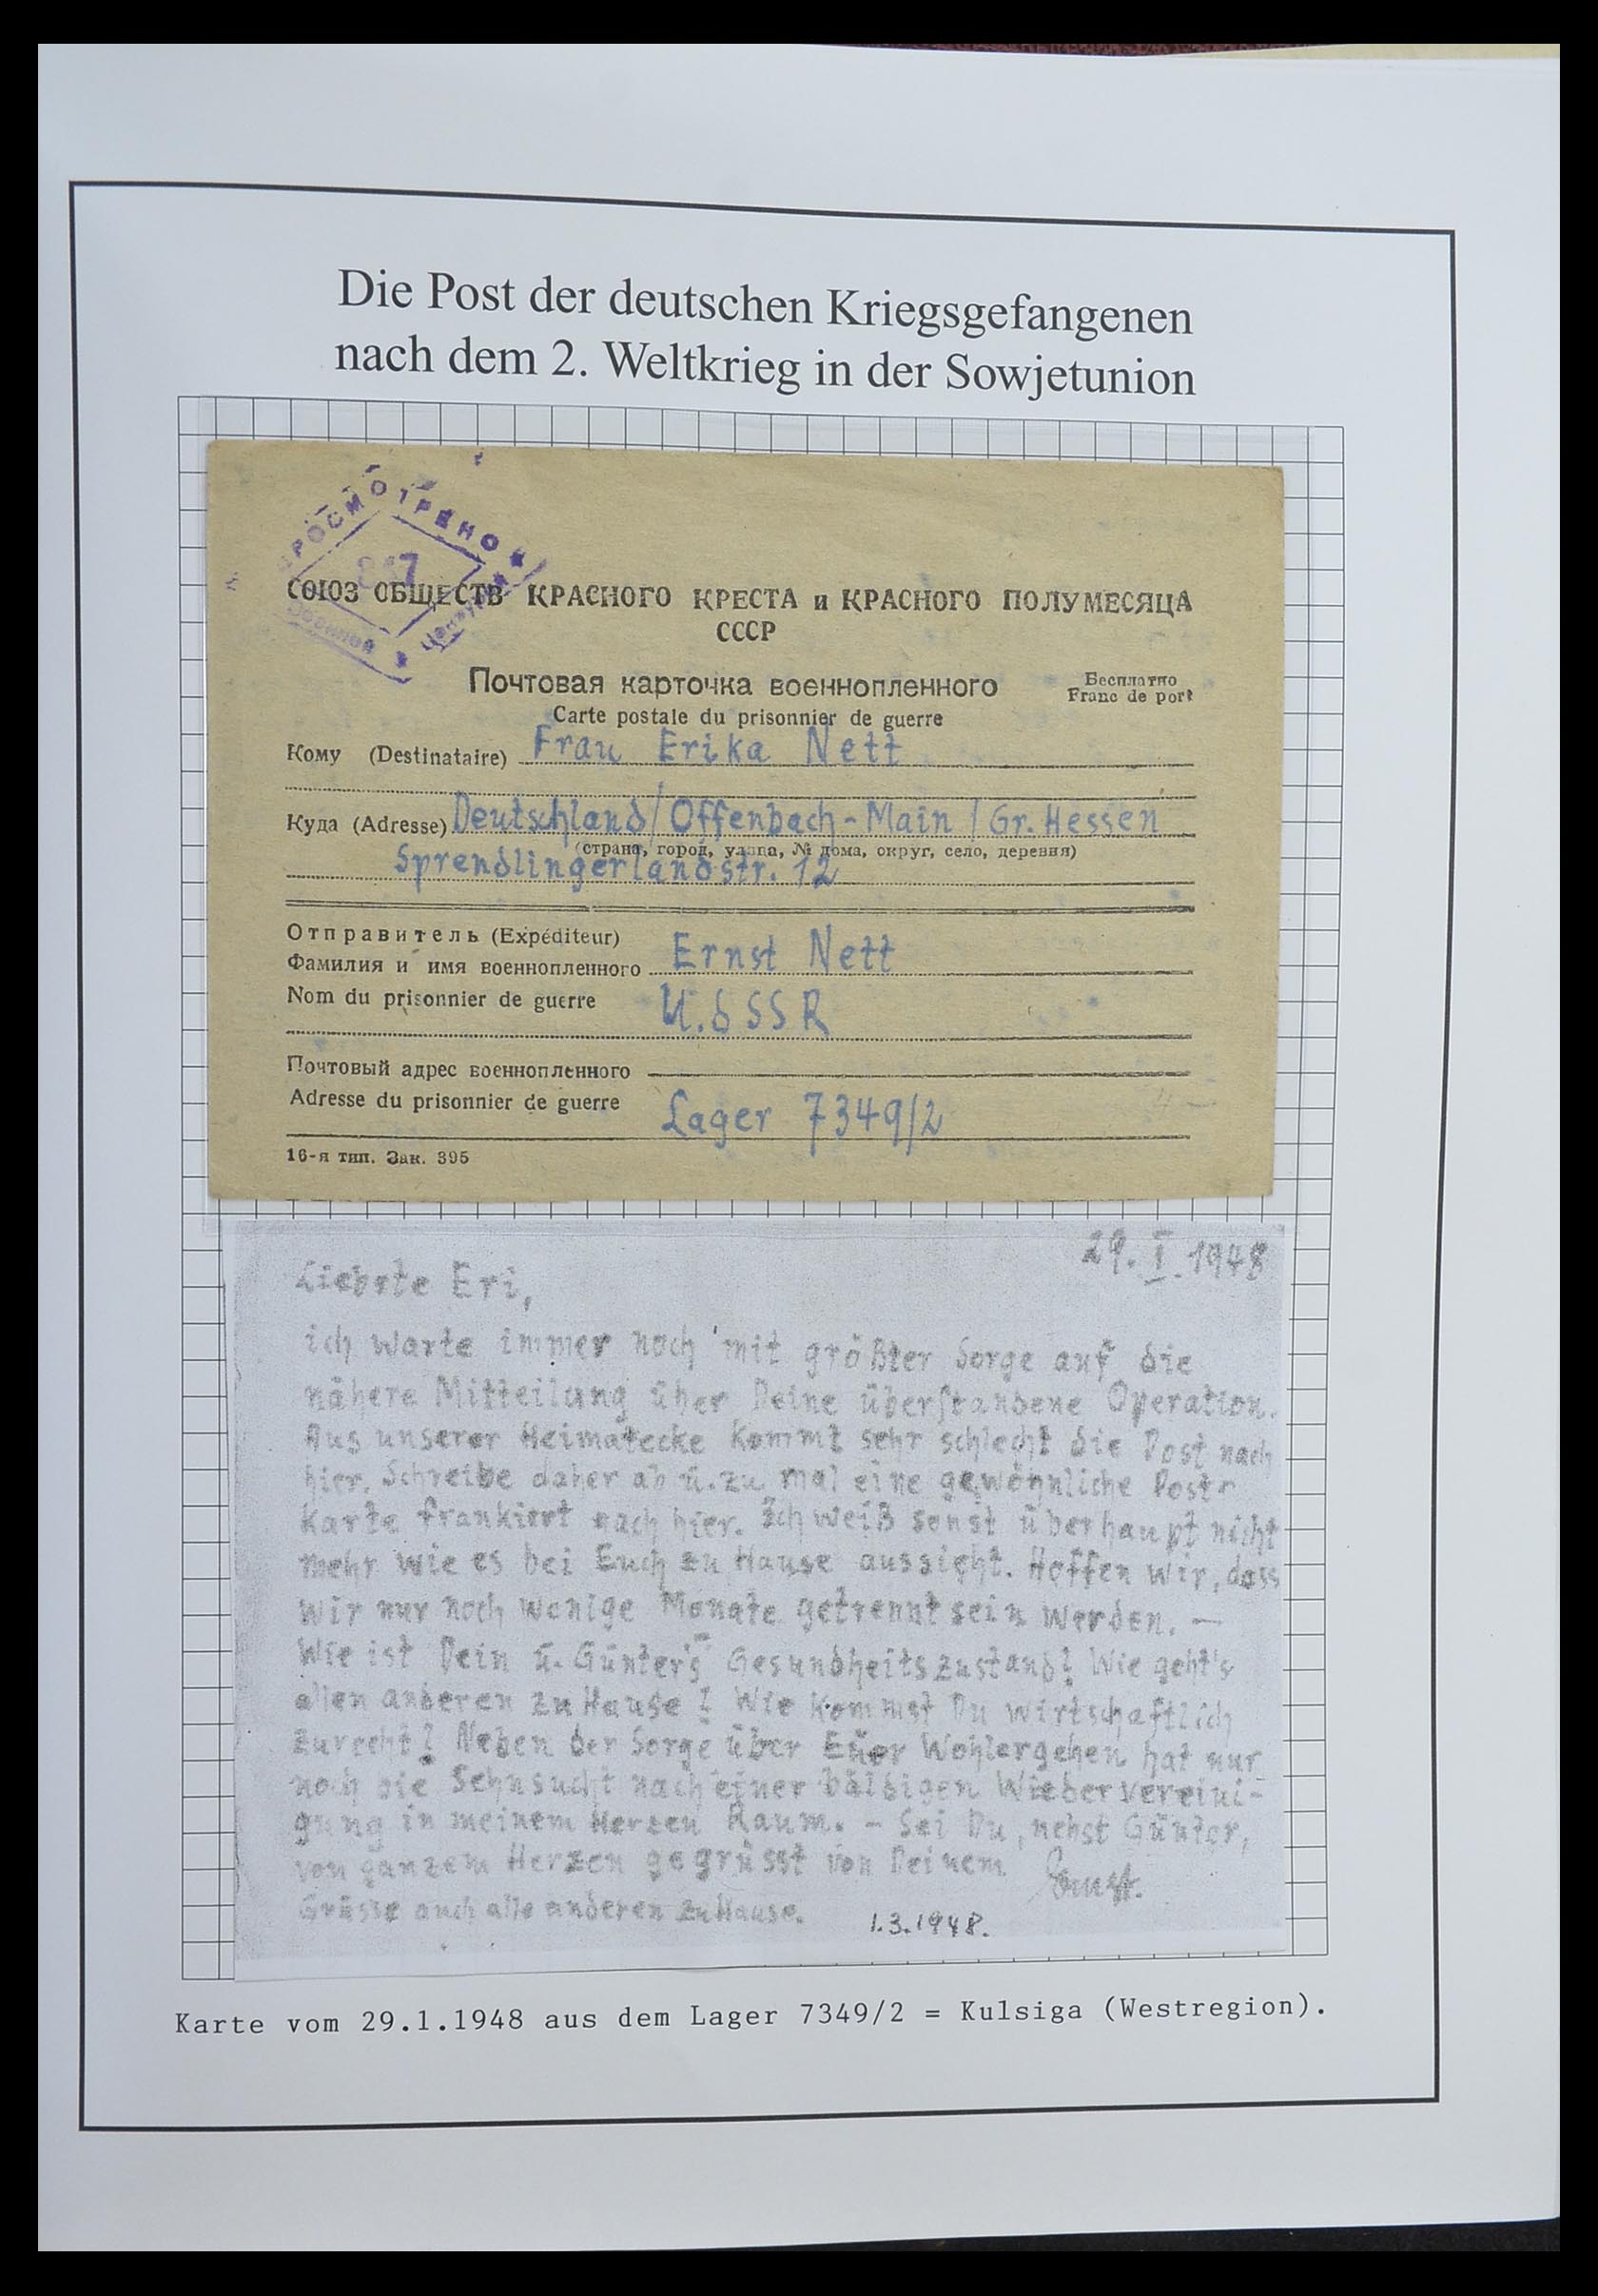 Die Post der deutschen Kriegsgefangenen
nach dem 2. Weltkrieg in der Sowjetunion
ПРОСМОТРЕНО
Военной Цензурой
СОЮЗ ОБЩЕСТВ КРАСНОГО КРЕСТА и КРАСНОГО ПОЛУМЕСЯЦА
СССР
Почтовая карточка военнопленного
Бесплатно
Franc de port
Carte postale du prisonnier de guerre
Кому (Destinataire) Frau Erika Nett
Куда (Adresse) Deutschland/Offenbach-Main/Gr. Hessen
(страна, город, улица, № дома, округ, село, деревня)
Sprendlingerlandstr. 12
Отправитель (Expéditeur)
Фамилия и имя военнопленного Ernst Nett
Nom du prisonnier de guerre U.d SSR
Почтовый адрес военнопленного
Adresse du prisonnier de guerre Lager 7349/2
16-я тип. Зак. 395
29. I. 1948
Liebste Eri,
ich warte immer noch mit größter Sorge auf die
nähere Mitteilung über Deine überstandene Operation.
Aus unserer Heimatecke kommt sehr schlecht die Post nach
hier. Schreibe daher ab u. zu mal eine gewöhnliche Post-
karte frankiert nach hier. Ich weiß sonst überhaupt nicht
mehr wie es bei Euch zu Hause aussieht. Hoffen wir, dass
wir nur noch wenige Monate getrennt sein werden. —
Wie ist Dein u. Günter's Gesundheitszustand? Wie geht's
allen anderen zu Hause? Wie kommst Du wirtschaftlich
zurecht? Neben der Sorge über Euer Wohlergehen hat nur
noch die Sehnsucht nach einer baldigen Wiedervereini-
gung in meinem Herzen Raum. – Sei Du, nebst Günter,
von ganzem Herzen gegrüsst von Deinem Ernst.
Grüsse auch alle anderen zu Hause.
1.3.1948.
Karte vom 29.1.1948 aus dem Lager 7349/2 = Kulsiga (Westregion).